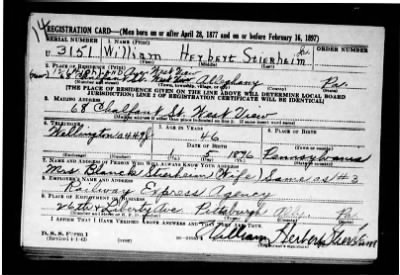 14
REGISTRATION CARD—(Men born on or after April 28, 1877 and on or before February 16, 1897)
SERIAL NUMBER 1. NAME (Print)
U 3151 William Herbert Stierheim
2. PLACE OF RESIDENCE (Print)
West View Allegheny Pa.
(Town, township, village, or city) (County) (State)
[THE PLACE OF RESIDENCE GIVEN ON THE LINE ABOVE WILL DETERMINE LOCAL BOARD
JURISDICTION; LINE 2 OF REGISTRATION CERTIFICATE WILL BE IDENTICAL]
3. MAILING ADDRESS
68 Chalfant St. West View
4. TELEPHONE 5. AGE IN YEARS 6. PLACE OF BIRTH
Wellington 46
DATE OF BIRTH
1 5 1896 Pennsylvania
7. NAME AND ADDRESS OF PERSON WHO WILL ALWAYS KNOW YOUR ADDRESS
Mrs Blanche Stierheim (Wife) Same as #3
8. EMPLOYER'S NAME AND ADDRESS
Railway Express Agency
9. PLACE OF EMPLOYMENT OR BUSINESS
26th & Liberty Ave. Pittsburgh Ally. Pa.
I AFFIRM THAT I HAVE VERIFIED ABOVE ANSWERS AND THAT THEY ARE TRUE.
D. S. S. Form 1
(Revised 4-1-42)
William Herbert Stierheim